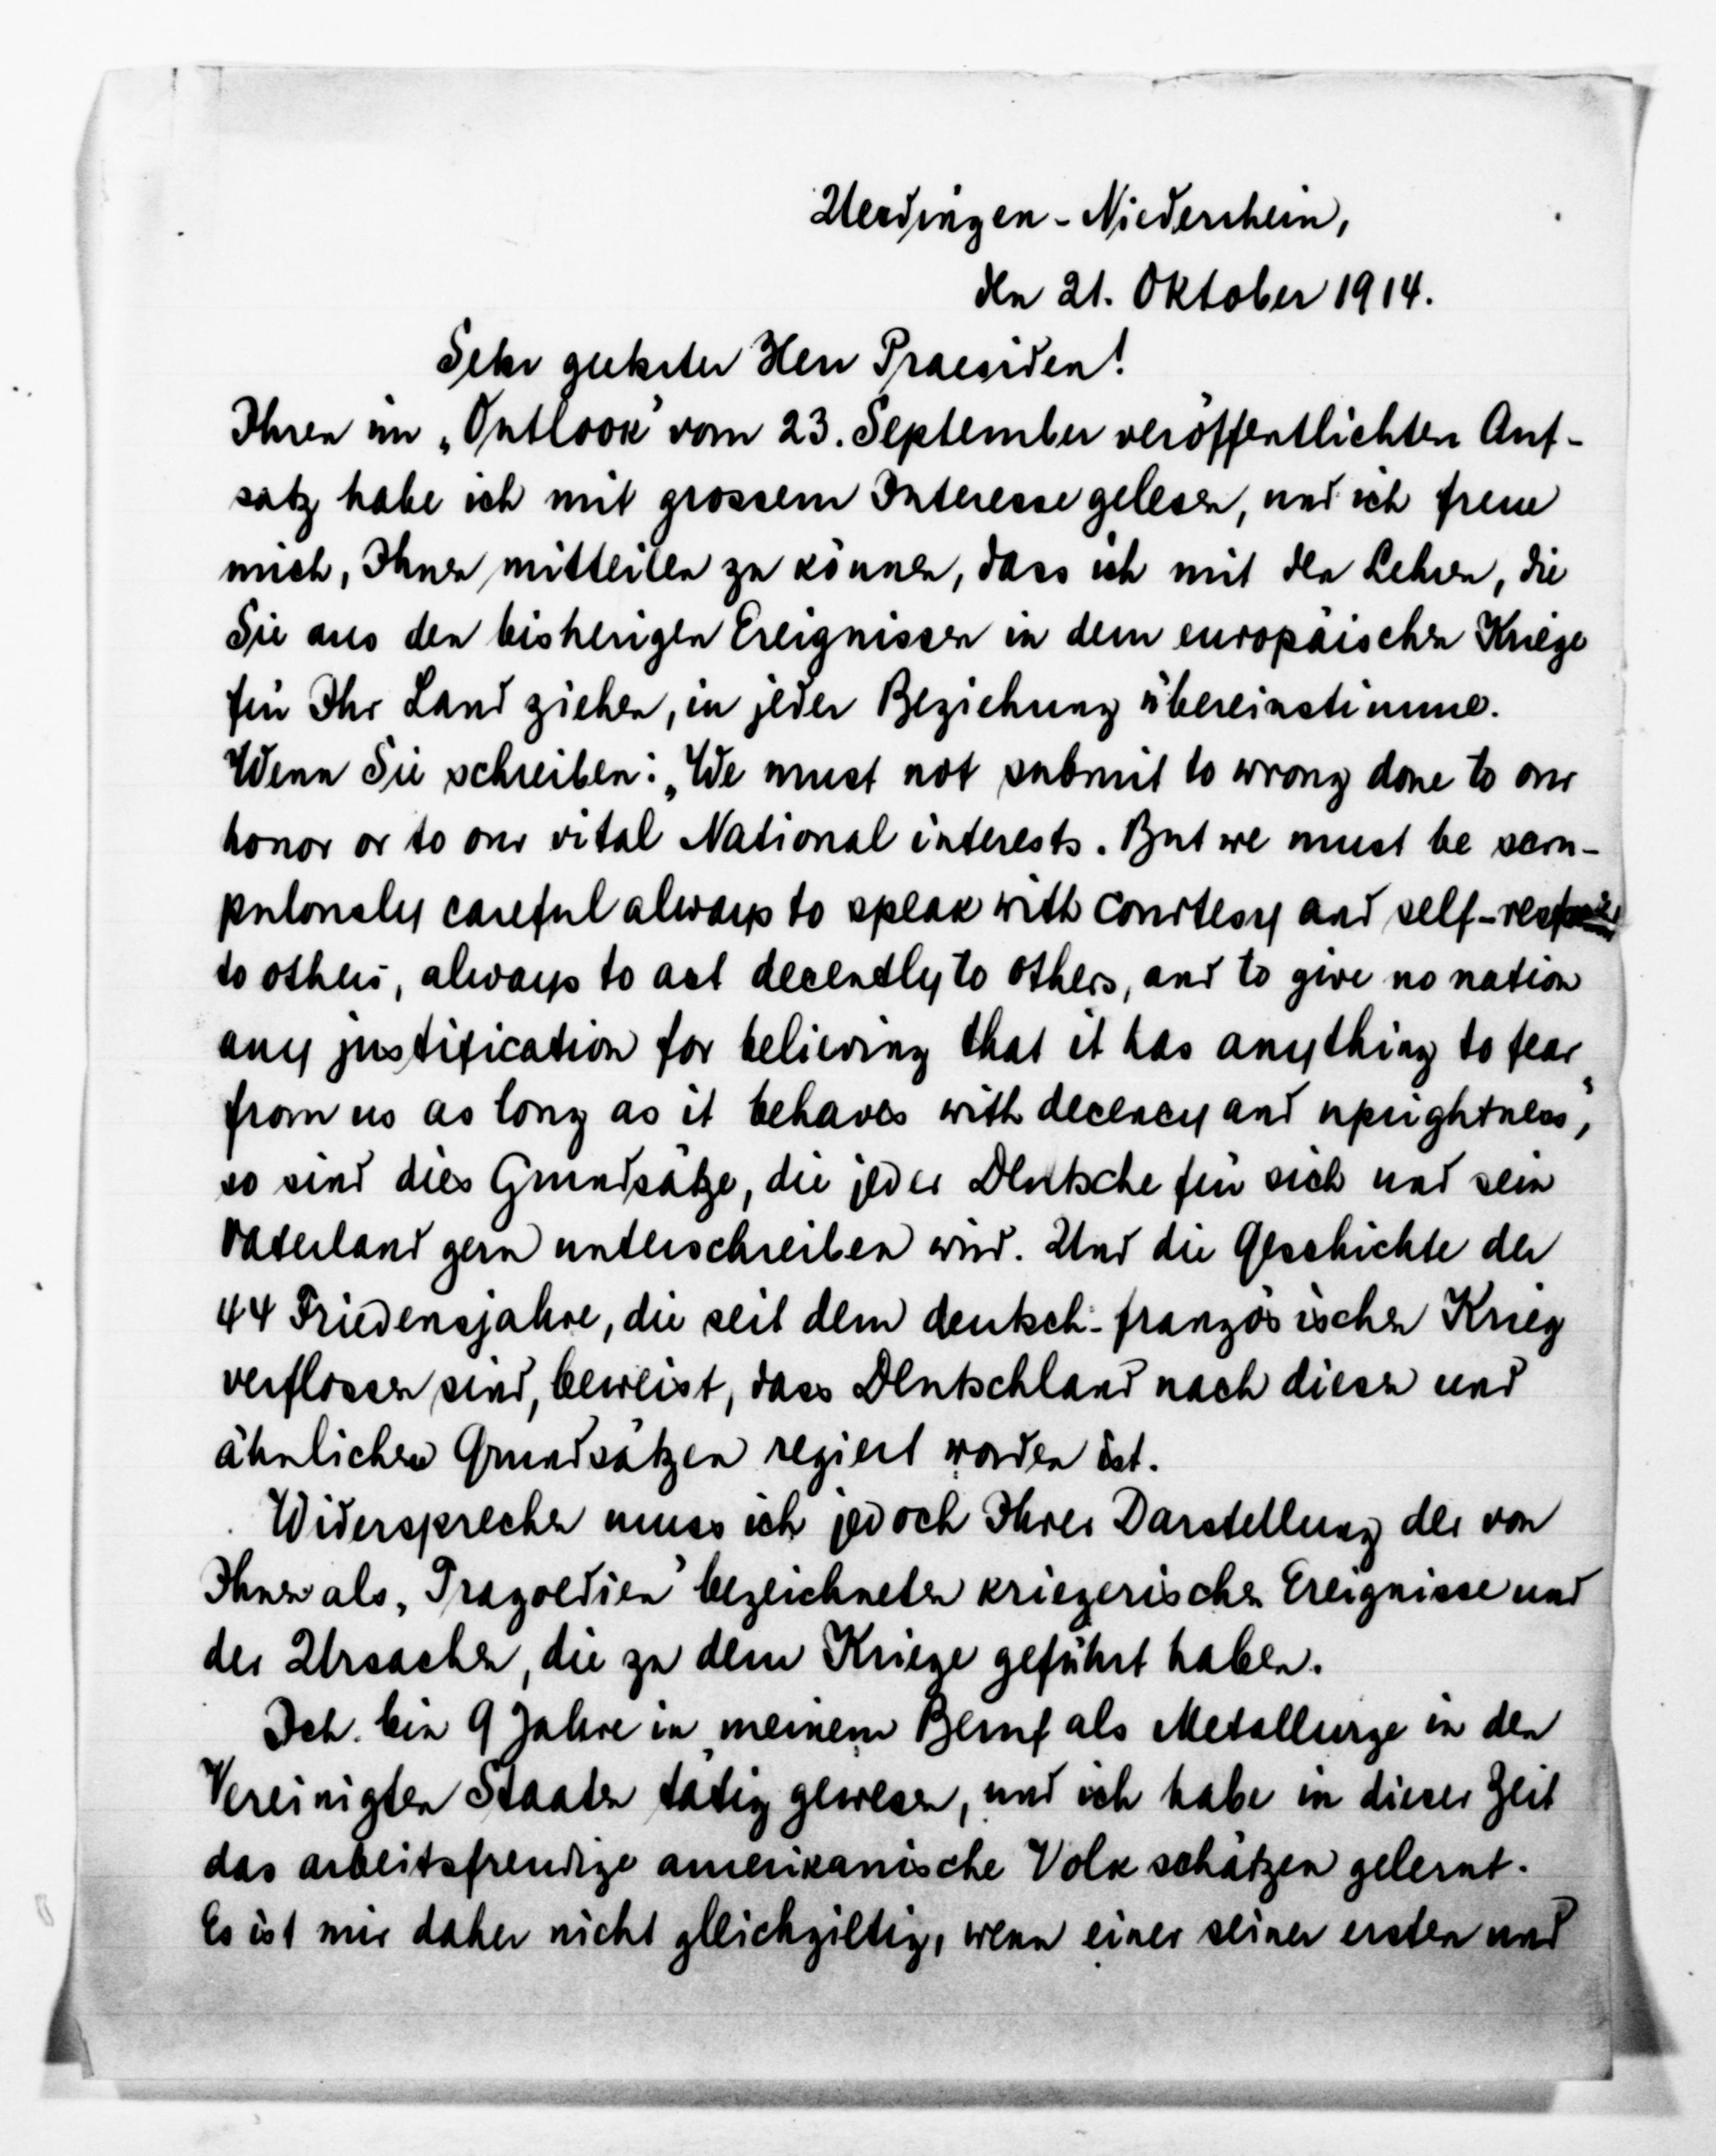 Uerdingen-Niederrhein,
den 21. Oktober 1914.
Sehr geehrter Herr Praesiden!
Ihren im „Outlook” vom 23. September veröffentlichten Auf-
satz habe ich mit grossem Interesse gelesen, und ich freue
mich, Ihnen mitteilen zu können, dass ich mit den Lehren, die
Sie aus den bisherigen Ereignissen in dem europäischen Kriege
für Ihr Land ziehen, in jeder Beziehung übereinstimme.
Wenn Sie schreiben: „We must not submit to wrong done to our
honor or to our vital National interests. But we must be scru-
pulously careful always to speak with courtesy and self-respect
to others, always to act decently to others, and to give no nation
any justification for believing that it has anything to fear
from us as long as it behaves with decency and uprightness”,
so sind dies Grundsätze, die jeder Deutsche für sich und sein
Vaterland gern unterschreiben wird. Und die Geschichte der
44 Friedensjahre, die seit dem deutsch-französischen Krieg
verflossen sind, beweist, dass Deutschland nach diesen und
ähnlichen Grundsätzen regiert worden ist.
Widersprechen muss ich jedoch Ihrer Darstellung der von
Ihnen als „Tragoedien” bezeichneten kriegerischen Ereignisse und
der Ursachen, die zu dem Kriege geführt haben.
Ich bin 9 Jahre in meinem Beruf als Metallurge in den
Vereinigten Staaten tätig gewesen, und ich habe in dieser Zeit
das arbeitsfreudige amerikanische Volk schätzen gelernt.
Es ist mir daher nicht gleichgiltig, wenn einer seiner ersten und